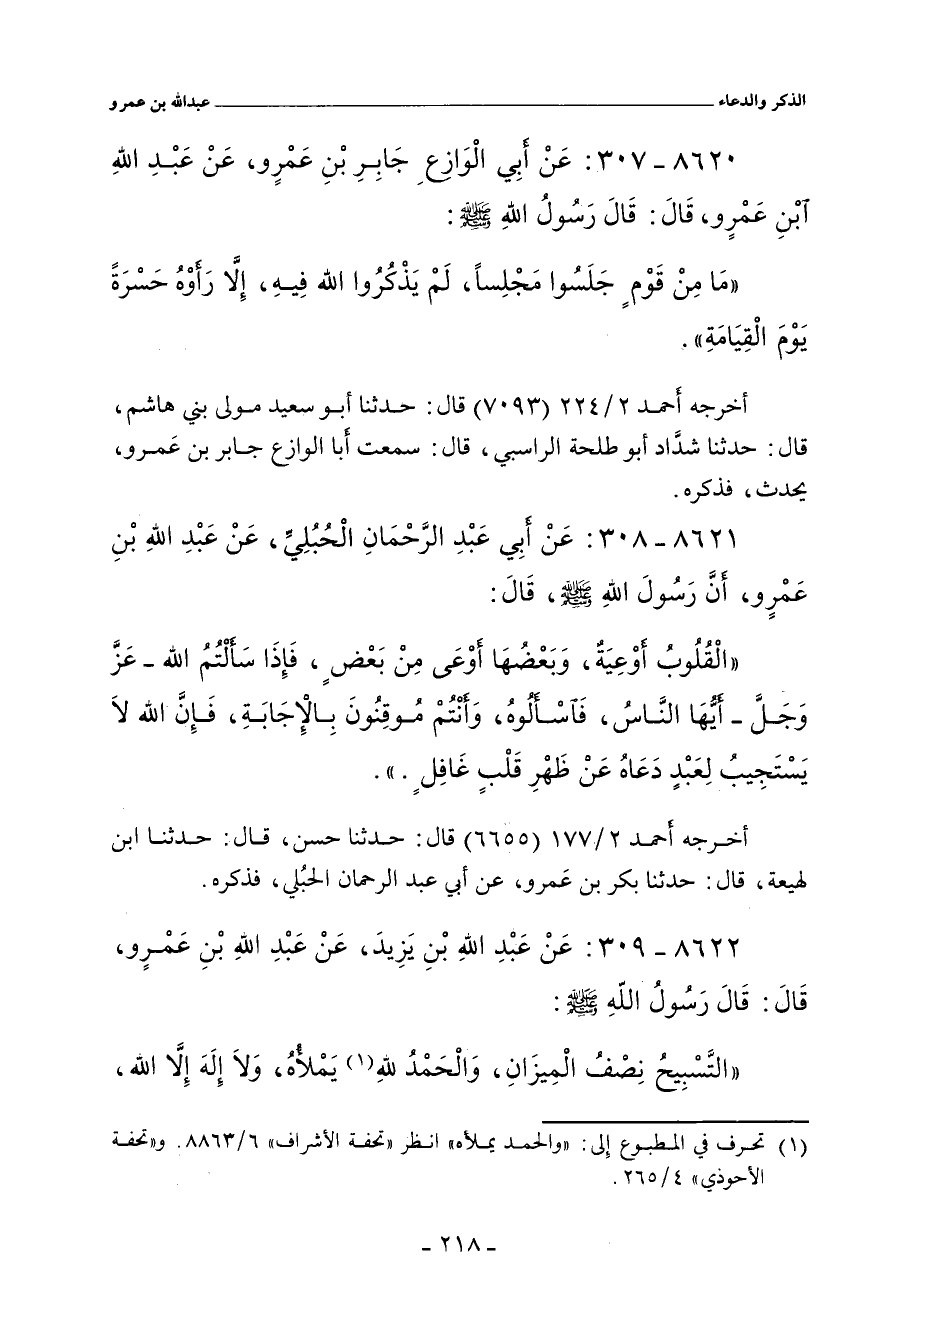 الذكر والدعاء ــــــــــــــــــــــــــــــــــــــــ عبدالله بن عمرو
٨٦٢٠ - ٣٠٧: عَنْ أَبِي الْوَازِعِ جَابِرِ بْنِ عَمْرٍو، عَنْ عَبْدِ اللهِ
آبْنِ عَمْرٍو، قَالَ: قَالَ رَسُولُ اللهِ ﷺ:
«مَا مِنْ قَوْمٍ جَلَسُوا مَجْلِساً، لَمْ يَذْكُرُوا الله فِيهِ، إِلَّا رَأَوْهُ حَسْرَةً
يَوْمَ الْقِيَامَةِ».
أخرجه أحمد ٢/ ٢٢٤ (٧٠٩٣) قال: حدثنا أبو سعيد مولى بني هاشم،
قال: حدثنا شدَّاد أبو طلحة الراسبي، قال: سمعت أبا الوازع جابر بن عَمرو،
يحدث، فذكره.
٨٦٢١ - ٣٠٨: عَنْ أَبِي عَبْدِ الرَّحْمَانِ الْحُبُلِيِّ، عَنْ عَبْدِ اللهِ بْنِ
عَمْرٍو، أَنَّ رَسُولَ اللهِ ﷺ، قَالَ:
«الْقُلُوبُ أَوْعِيَةٌ، وَبَعْضُهَا أَوْعَى مِنْ بَعْضٍ، فَإِذَا سَأَلْتُمُ الله - عَزَّ
وَجَلَّ - أَيُّهَا النَّاسُ، فَآسْأَلُوهُ، وَأَنْتُمْ مُوقِنُونَ بِالْإِجَابَةِ، فَإِنَّ الله لاَ
يَسْتَجِيبُ لِعَبْدٍ دَعَاهُ عَنْ ظَهْرِ قَلْبٍ غَافِلٍ .».
أخرجه أحمد ٢/ ١٧٧ (٦٦٥٥) قال: حدثنا حسن، قال: حدثنا ابن
لهيعة، قال: حدثنا بكر بن عَمرو، عن أبي عبد الرحمان الحُبُلي، فذكره.
٨٦٢٢ - ٣٠٩: عَنْ عَبْدِ اللهِ بْنِ يَزِيدَ، عَنْ عَبْدِ اللهِ بْنِ عَمْرٍو،
قَالَ: قَالَ رَسُولُ اللّهِ ﷺ:
«التَّسْبِيحُ نِصْفُ الْمِيزَانِ، وَالْحَمْدُ للهِ(١) يَمْلأُهُ، وَلاَ إِلَهَ إِلَّا الله،
(١) تحرف في المطبوع إلى: «والحمد يملأه» انظر «تحفة الأشراف» ٦/ ٨٨٦٣. و«تحفة
الأحوذي» ٤/ ٢٦٥.
- ٢١٨ -